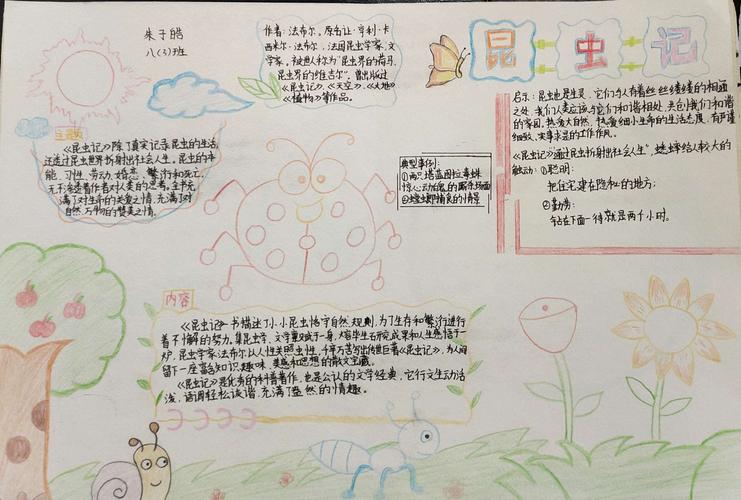 朱子皓
八(3)班
作者:法布尔,原名让·亨利·卡
西米尔·法布尔,法国昆虫学家、文
学家,被世人称为"昆虫界的荷马,
昆虫界的维吉尔"。曾出版过
《昆虫记》、《天空》、《大地》
《植物》等作品。
昆虫记
主题
《昆虫记》除了真实记录昆虫的生活,
还透过昆虫世界折射出社会人生,昆虫的本
能、习性、劳动、婚恋、繁衍和死亡,
无不渗透着作者对人类的思考。全书充
满了对生命的关爱之情,充满了对
自然万物的赞美之情。
典型事例:
①两只塔蓝图拉毒蛛
惊心动魄的厮杀场面
②螳螂捕食的情景
启示:昆虫也是生灵,它们与人有着丝丝缕缕的相通
之处,我们人类应该与它们和谐相处,共创我们和谐
的家园。热爱大自然,热爱细小生命的生活态度,有严谨
细致、实事求是的工作作风。
《昆虫记》"通过昆虫折射出社会人生",蟋蟀给人较大的
触动:①聪明:
把住宅建在隐秘的地方;
②勤劳:
钻在下面一待就是两个小时。
内容
《昆虫记》一书描述了小小昆虫恪守自然规则,为了生存和繁衍进行
着不懈的努力。集昆虫学、文学董知于一身,熔毕生研究成果和人生感悟于一
炉,昆虫学家法布尔以人性关照虫性,千辛万苦写出传世巨著《昆虫记》,为人间
留下一座富含知识、趣味、美感和思想的散文宝藏。
《昆虫记》是优秀的科普著作,也是公认的文学经典,它行文生动活
泼,语调轻松诙谐,充满了盎然的情趣。